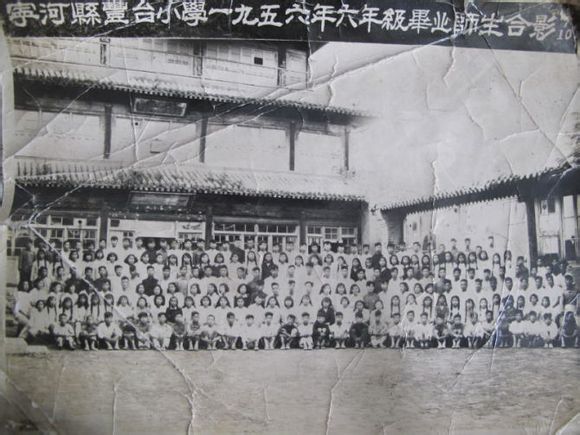 宁河縣豐台小學一九五六年六年級畢业師生合影
10